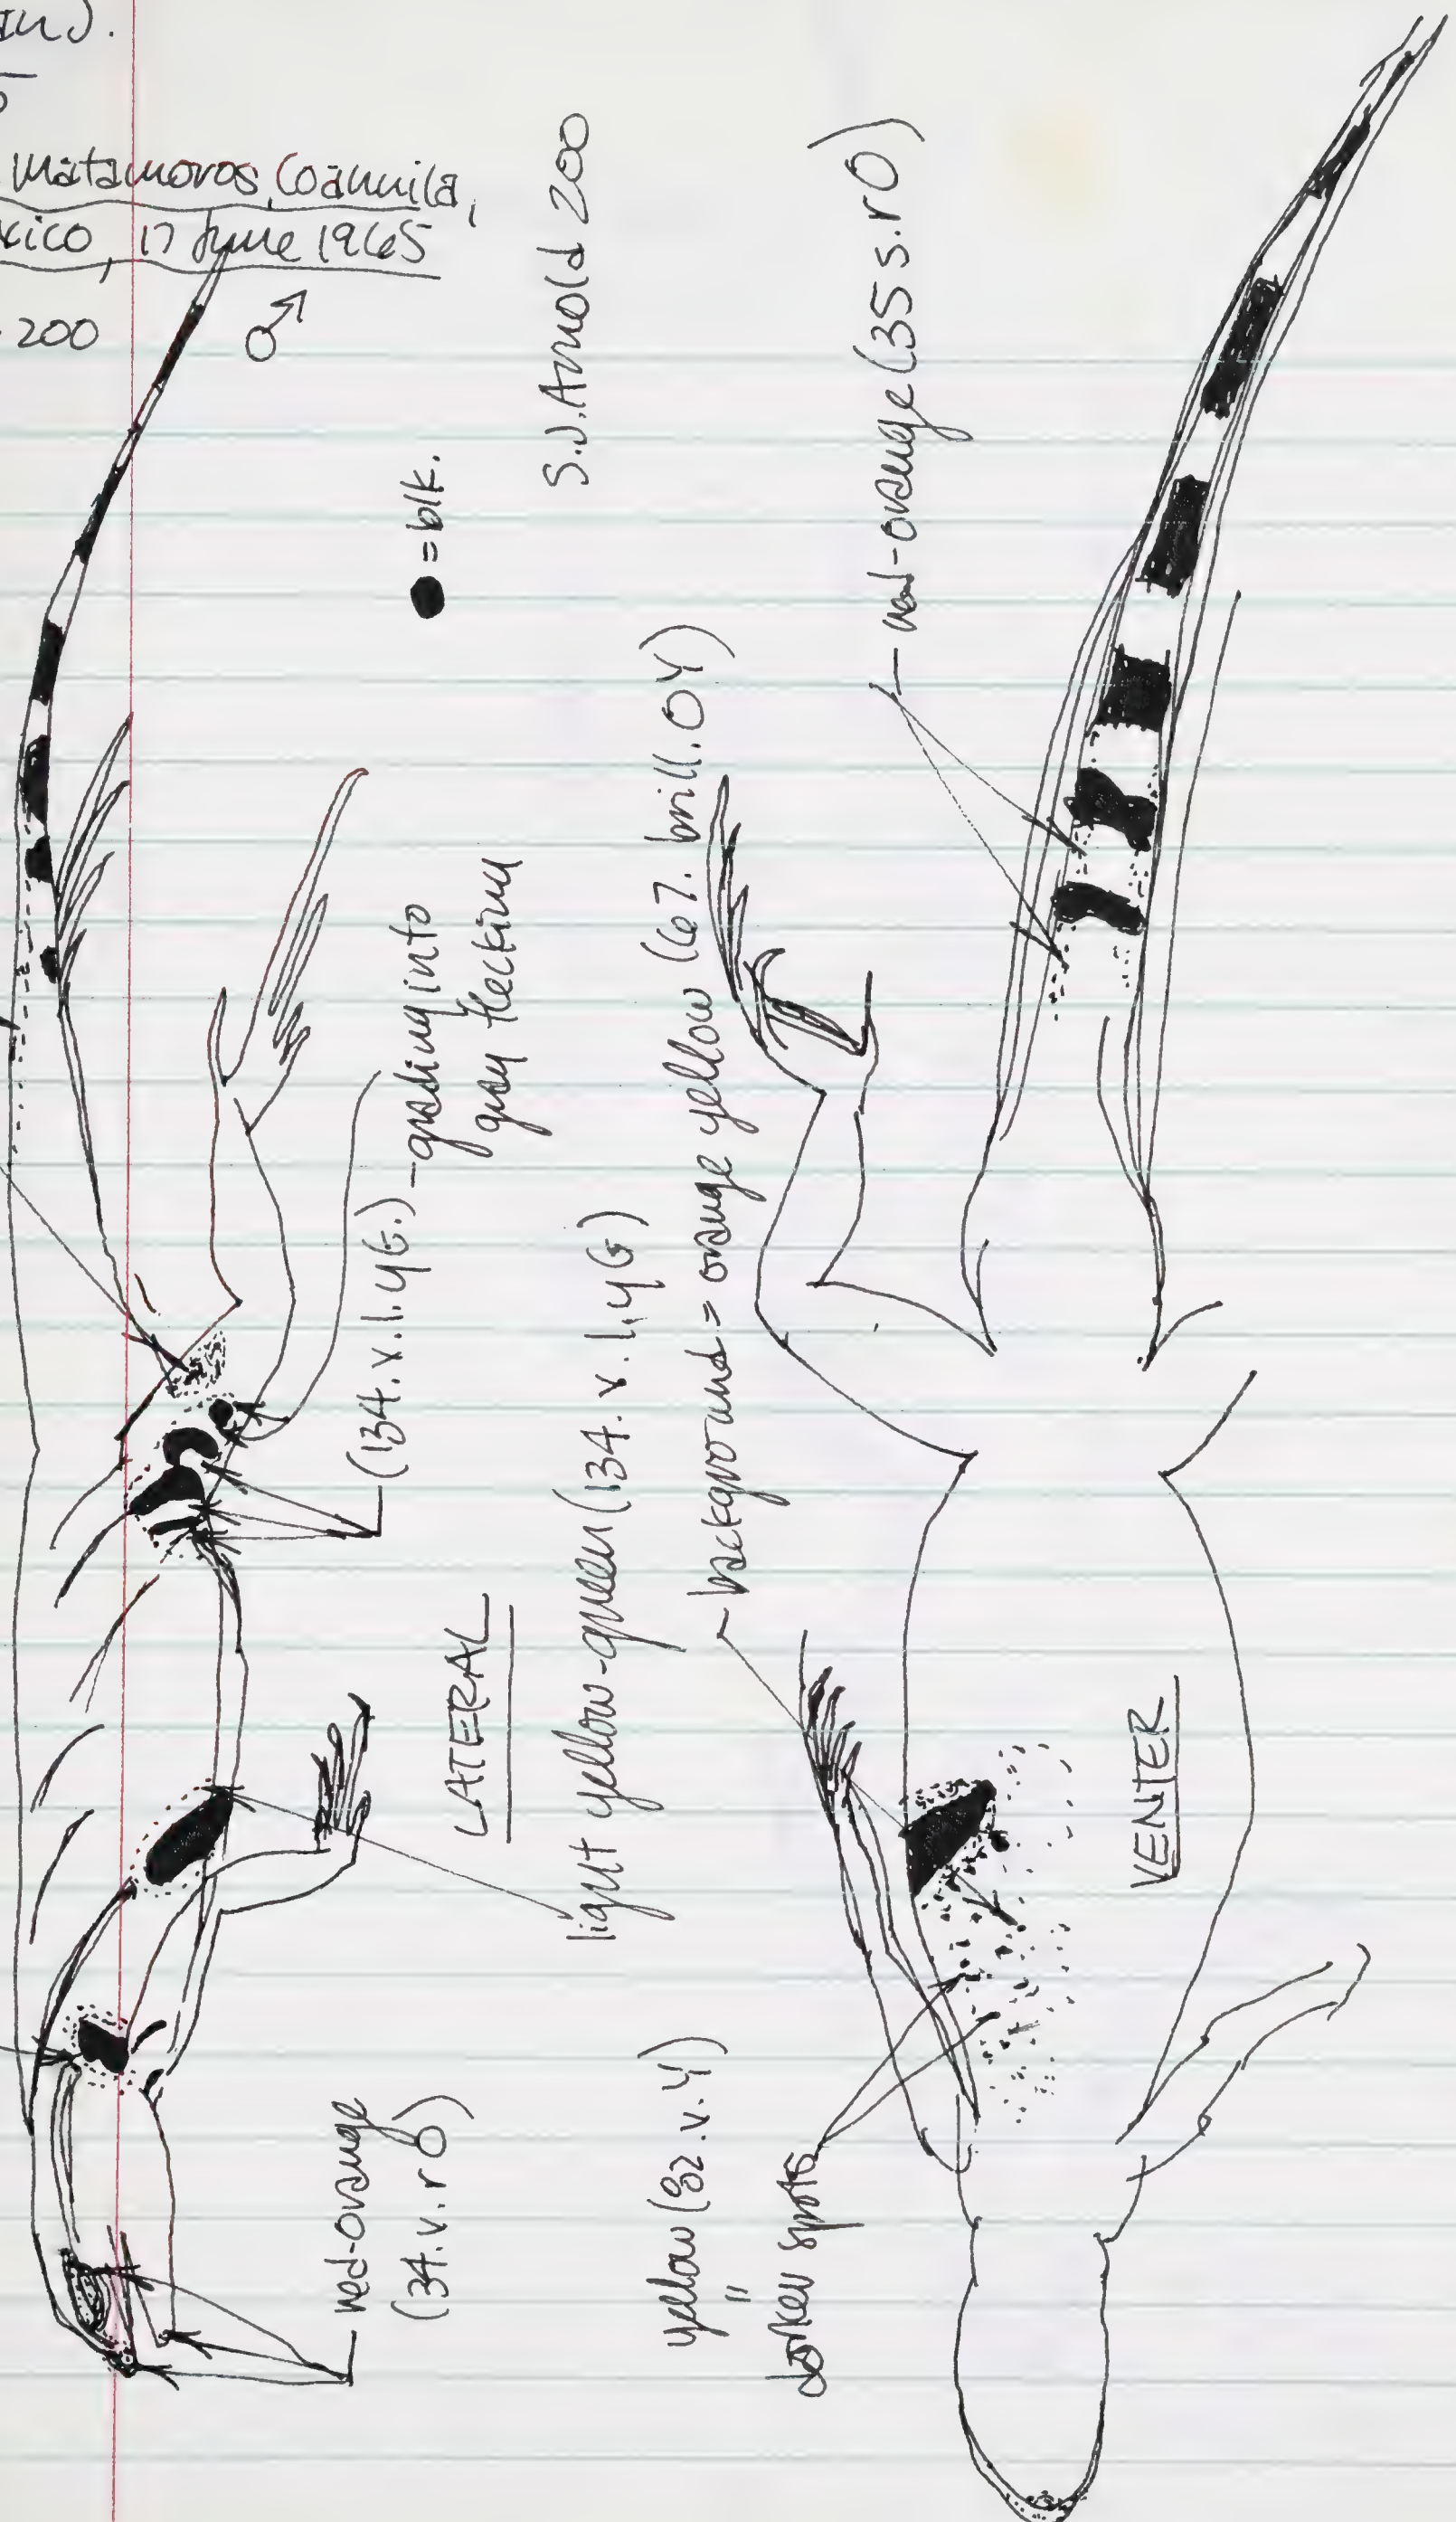 matamoros, Coahuila,
xico, 17 June 1965
200 ♂
● = blk.
S.J. Arnold 200
(134. v. l. y G.) – grading into
gray flecking
LATERAL
light yellow-green (134. v. l. y G)
background = orange yellow (67. brill. OY)
red-orange (35 s. r O)
red-orange
(34. v. r O)
yellow (82. v. Y)
"
darker spots
VENTER